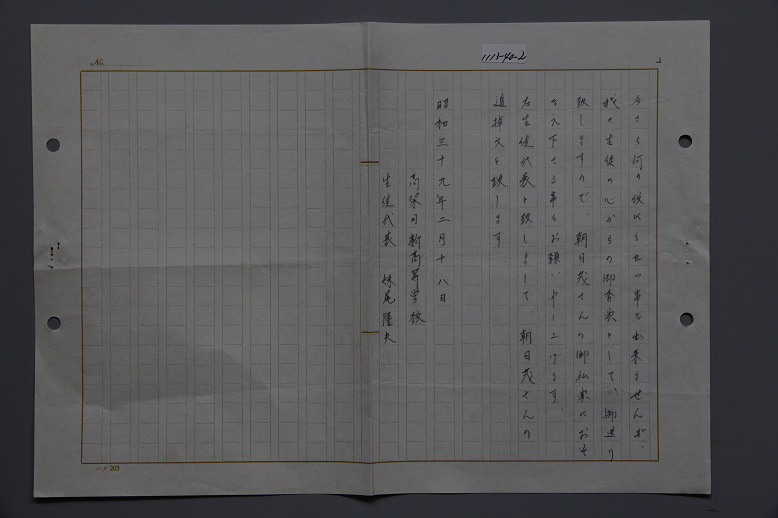 1113-40-2
2
No.
今さら何の役にも立つ事も出来ませんが、
我々生徒の心からの御香奠として、御送り
致しますので、朝日茂さんの御仏前におそ
なえ下さる事をお願い申し上げます。
右生徒代表と致しまして、朝日茂さんの
追悼文を致します
昭和三十九年二月十八日
高等学校
生徒代表 妹尾隆夫
コクヨ 203